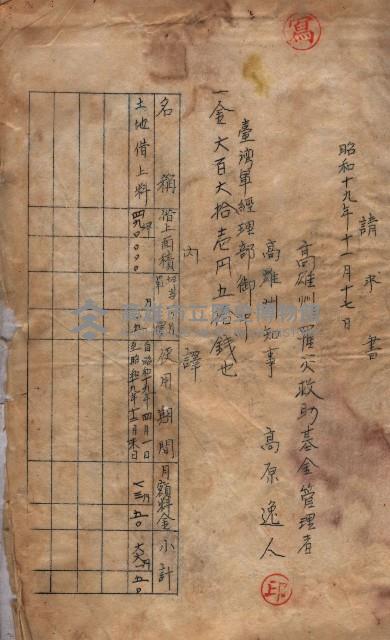 寫
請求書
昭和十九年十一月十七日
高雄州罹災救助基金管理者
高雄州知事 高原逸人
印
臺灣軍經理部御中
一金 六百六拾壱円五拾銭也
內譯
名稱 借上面積 使用期間 月額料金 小計
土地借上料 自昭和十九年四月一日 至昭和十九年十二月末日
高雄市立歷史博物館